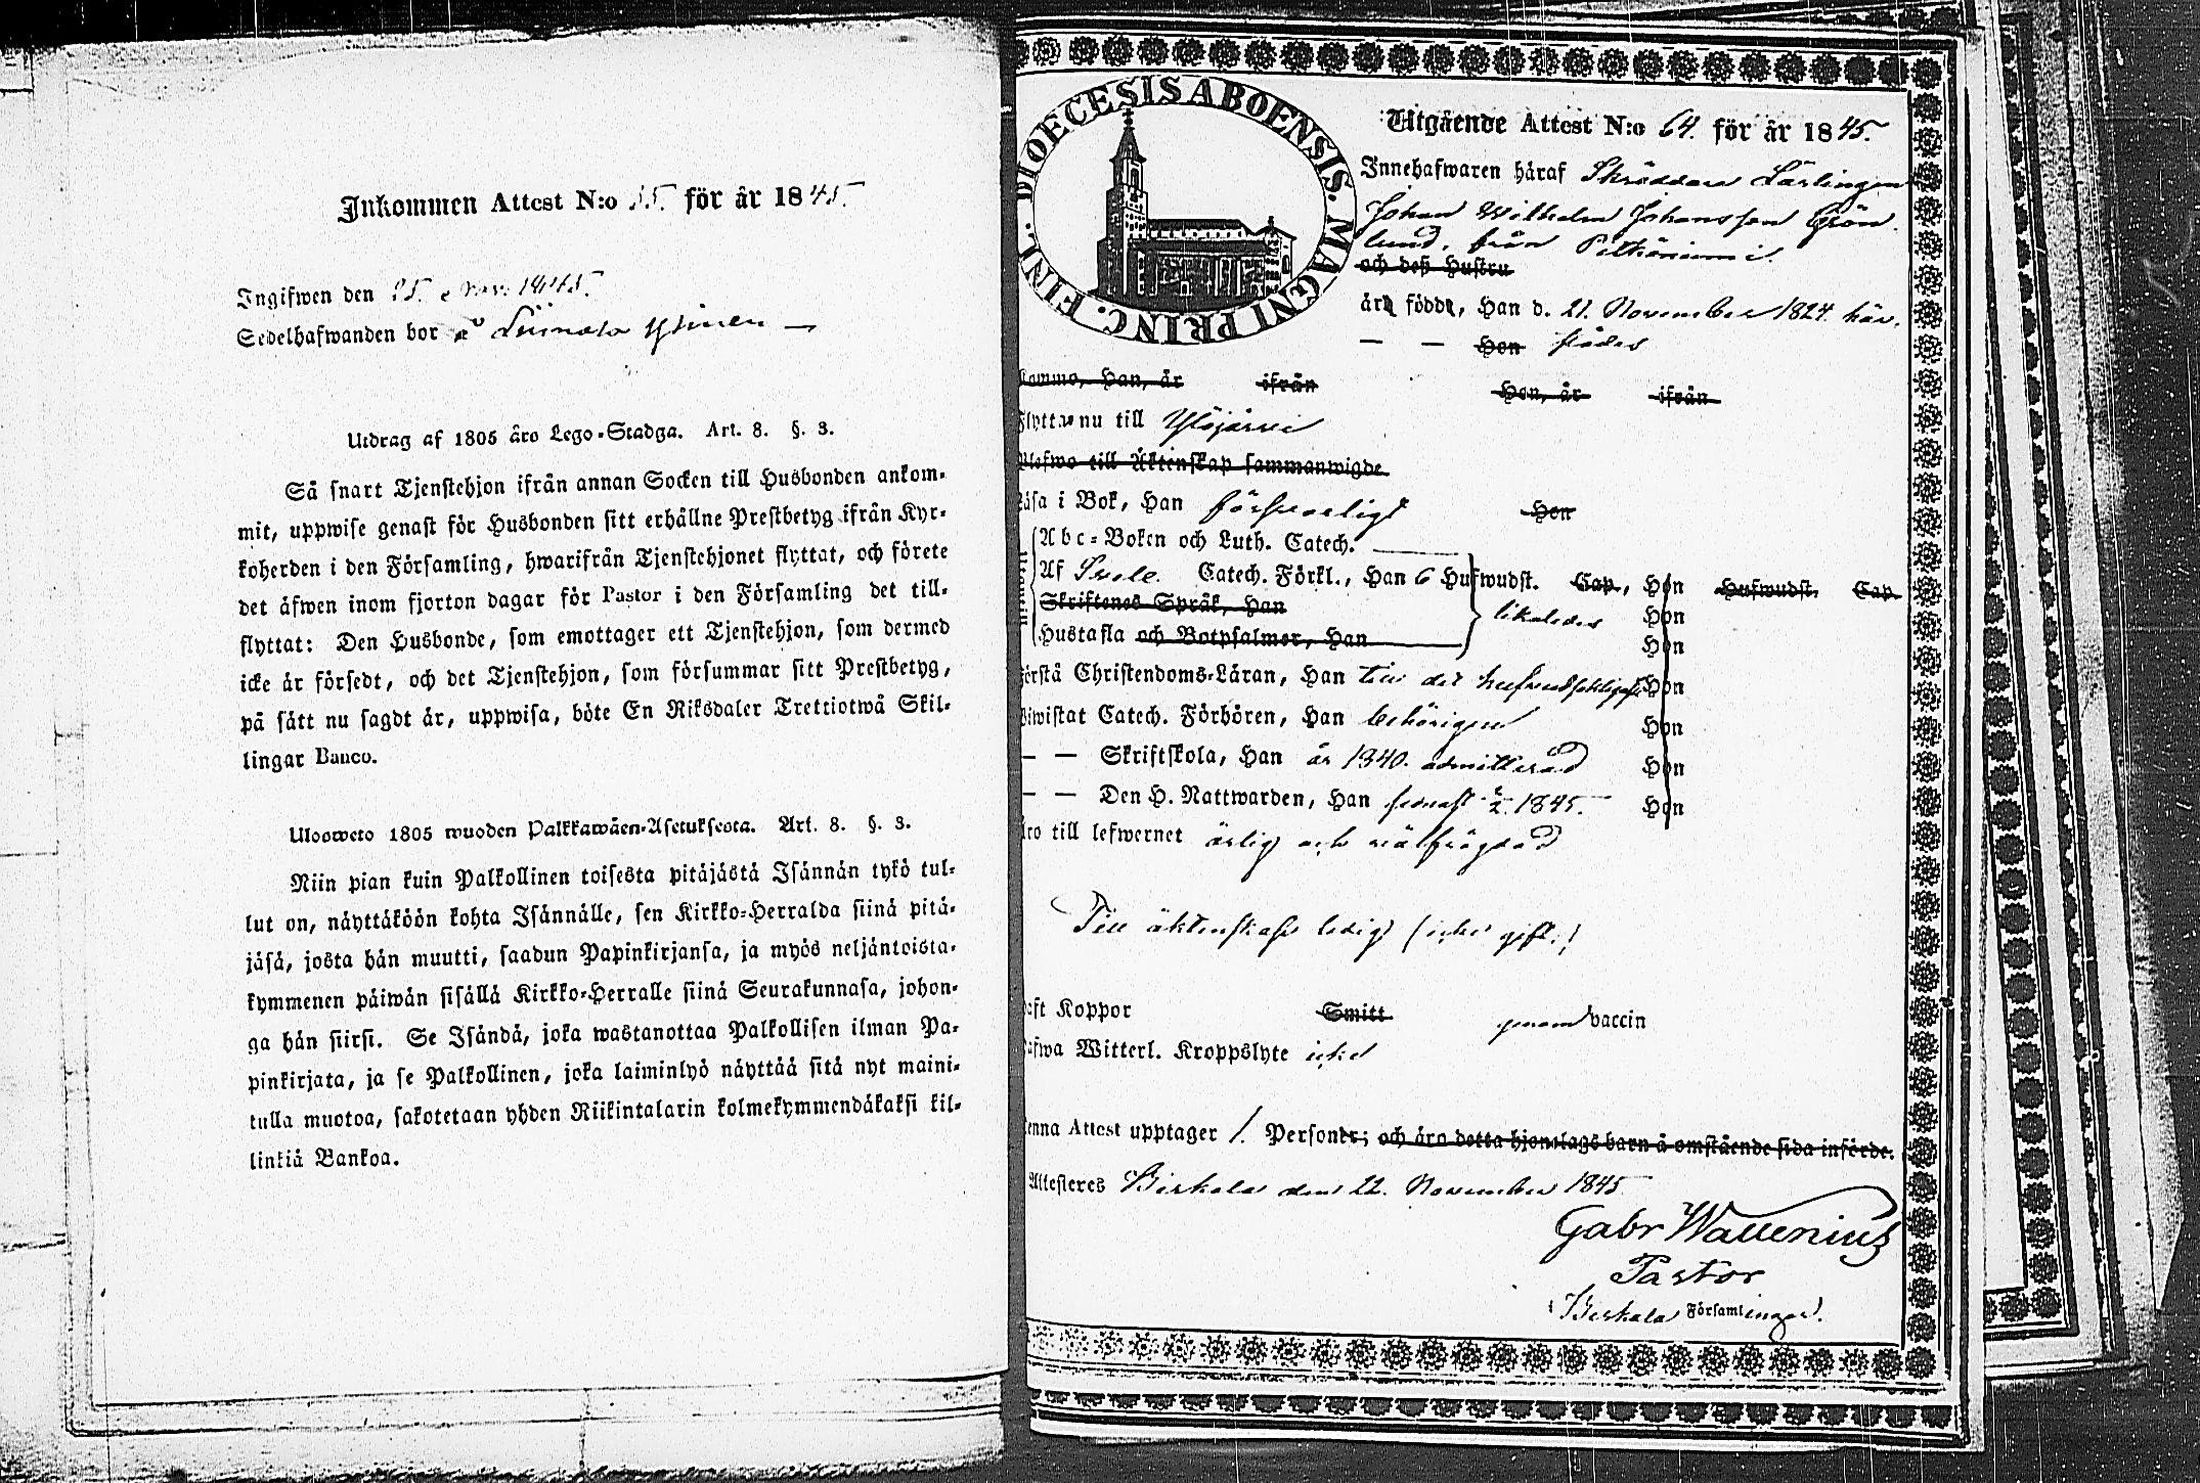 Inkommen Attest N:o 55. för år 1845.
Ingifwen den 25. 1845.
Sedelhafwanden bor å
Utdrag af 1805 åro Lego-Stadga. Art. 8. §. 3.
Så snart Tjenstehjon ifrån annan Socken till Husbonden ankom-
mit, uppwise genast för Husbonden sitt erhållne Prestbetyg ifrån Kyr-
koherden i den Församling, hwarifrån Tjenstehjonet flyttat, och förete
det äfwen inom fjorton dagar för Pastor i den Församling det till-
flyttat: Den Husbonde, som emottager ett Tjenstehjon, som dermed
icke är försedt, och det Tjenstehjon, som försummar sitt Prestbetyg,
på sätt nu sagdt är, uppwisa, böte En Riksdaler Trettiotwå Skil-
lingar Banco.
Ulosweto 1805 wuoden Palkkawäen-Asetuksesta. Art. 8. §. 3.
Niin pian kuin Palkollinen toisesta pitäjästä Isännän tykö tul-
lut on, näyttäköön kohta Isännälle, sen Kirkko-Herralda siinä pitä-
jäsä, josta hän muutti, saadun Papinkirjansa, ja myös neljäntoista-
kymmenen päiwän sisällä Kirkko-Herralle siinä Seurakunnasa, johon-
ga hän siirsi. Se Isändä, joka wastanottaa Palkollisen ilman Pa-
pinkirjata, ja se Palkollinen, joka laiminlyö näyttää sitä nyt maini-
tulla muotoa, sakotetaan yhden Riikintalarin kolmekymmendäkaksi kil-
linkiä Bankoa.
DIOECESIS ABOENSIS. MAGNI PRINC. FINL.
Utgående Attest N:o 64. för år 1845.
Innehafwaren häraf Skräddare Lärlingen
Johan Wilhelm Johansson Grön-
lund, från Pitkäniemi.
och deß Hustru
äro födde, Han d. 21. November 1824. här-
— — Hon städes
Komma, Han, år ifrån Hon, år ifrån
Flytta nu till Ylöjärvi
Blefwo till Äktenskap sammanwigde
Läsa i Bok, Han försvarligt Hon
Abc-Boken och Luth. Catech.
Af Svele. Catech. Förkl., Han 6 Hufwudst. Cap., Hon Hufwudst. Cap.
Skriftenes Språk, Han likaledes Hon
Hustafla och Botpsalmer, Han Hon
Förstå Christendoms-Läran, Han till det hufvudsakligaste Hon
Biwistat Catech. Förhören, Han behörigen Hon
— — Skriftskola, Han år 1840. admitterad Hon
— — Den H. Nattwarden, Han senast 1845. Hon
Äro till lefwernet ärlig och välfrägdad
Till äktenskap ledig (icke gift.)
Haft Koppor Smitt genom vaccin
Hafwa Witterl. Kroppslyte icke
Denna Attest upptager 1. Personer; och äro detta hjonelags barn å omstående sida införde.
Attesteres Birkala den 22. November 1845
Gabr Wallenius
Pastor
Birkala Församlingar.